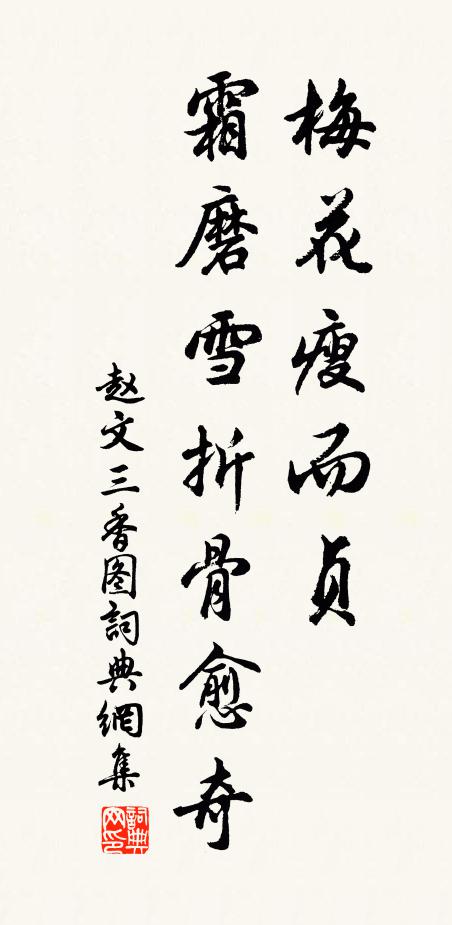 梅花瘦而貞
霜磨雪折骨愈奇
赵文三香图詞典網集
詞典网印